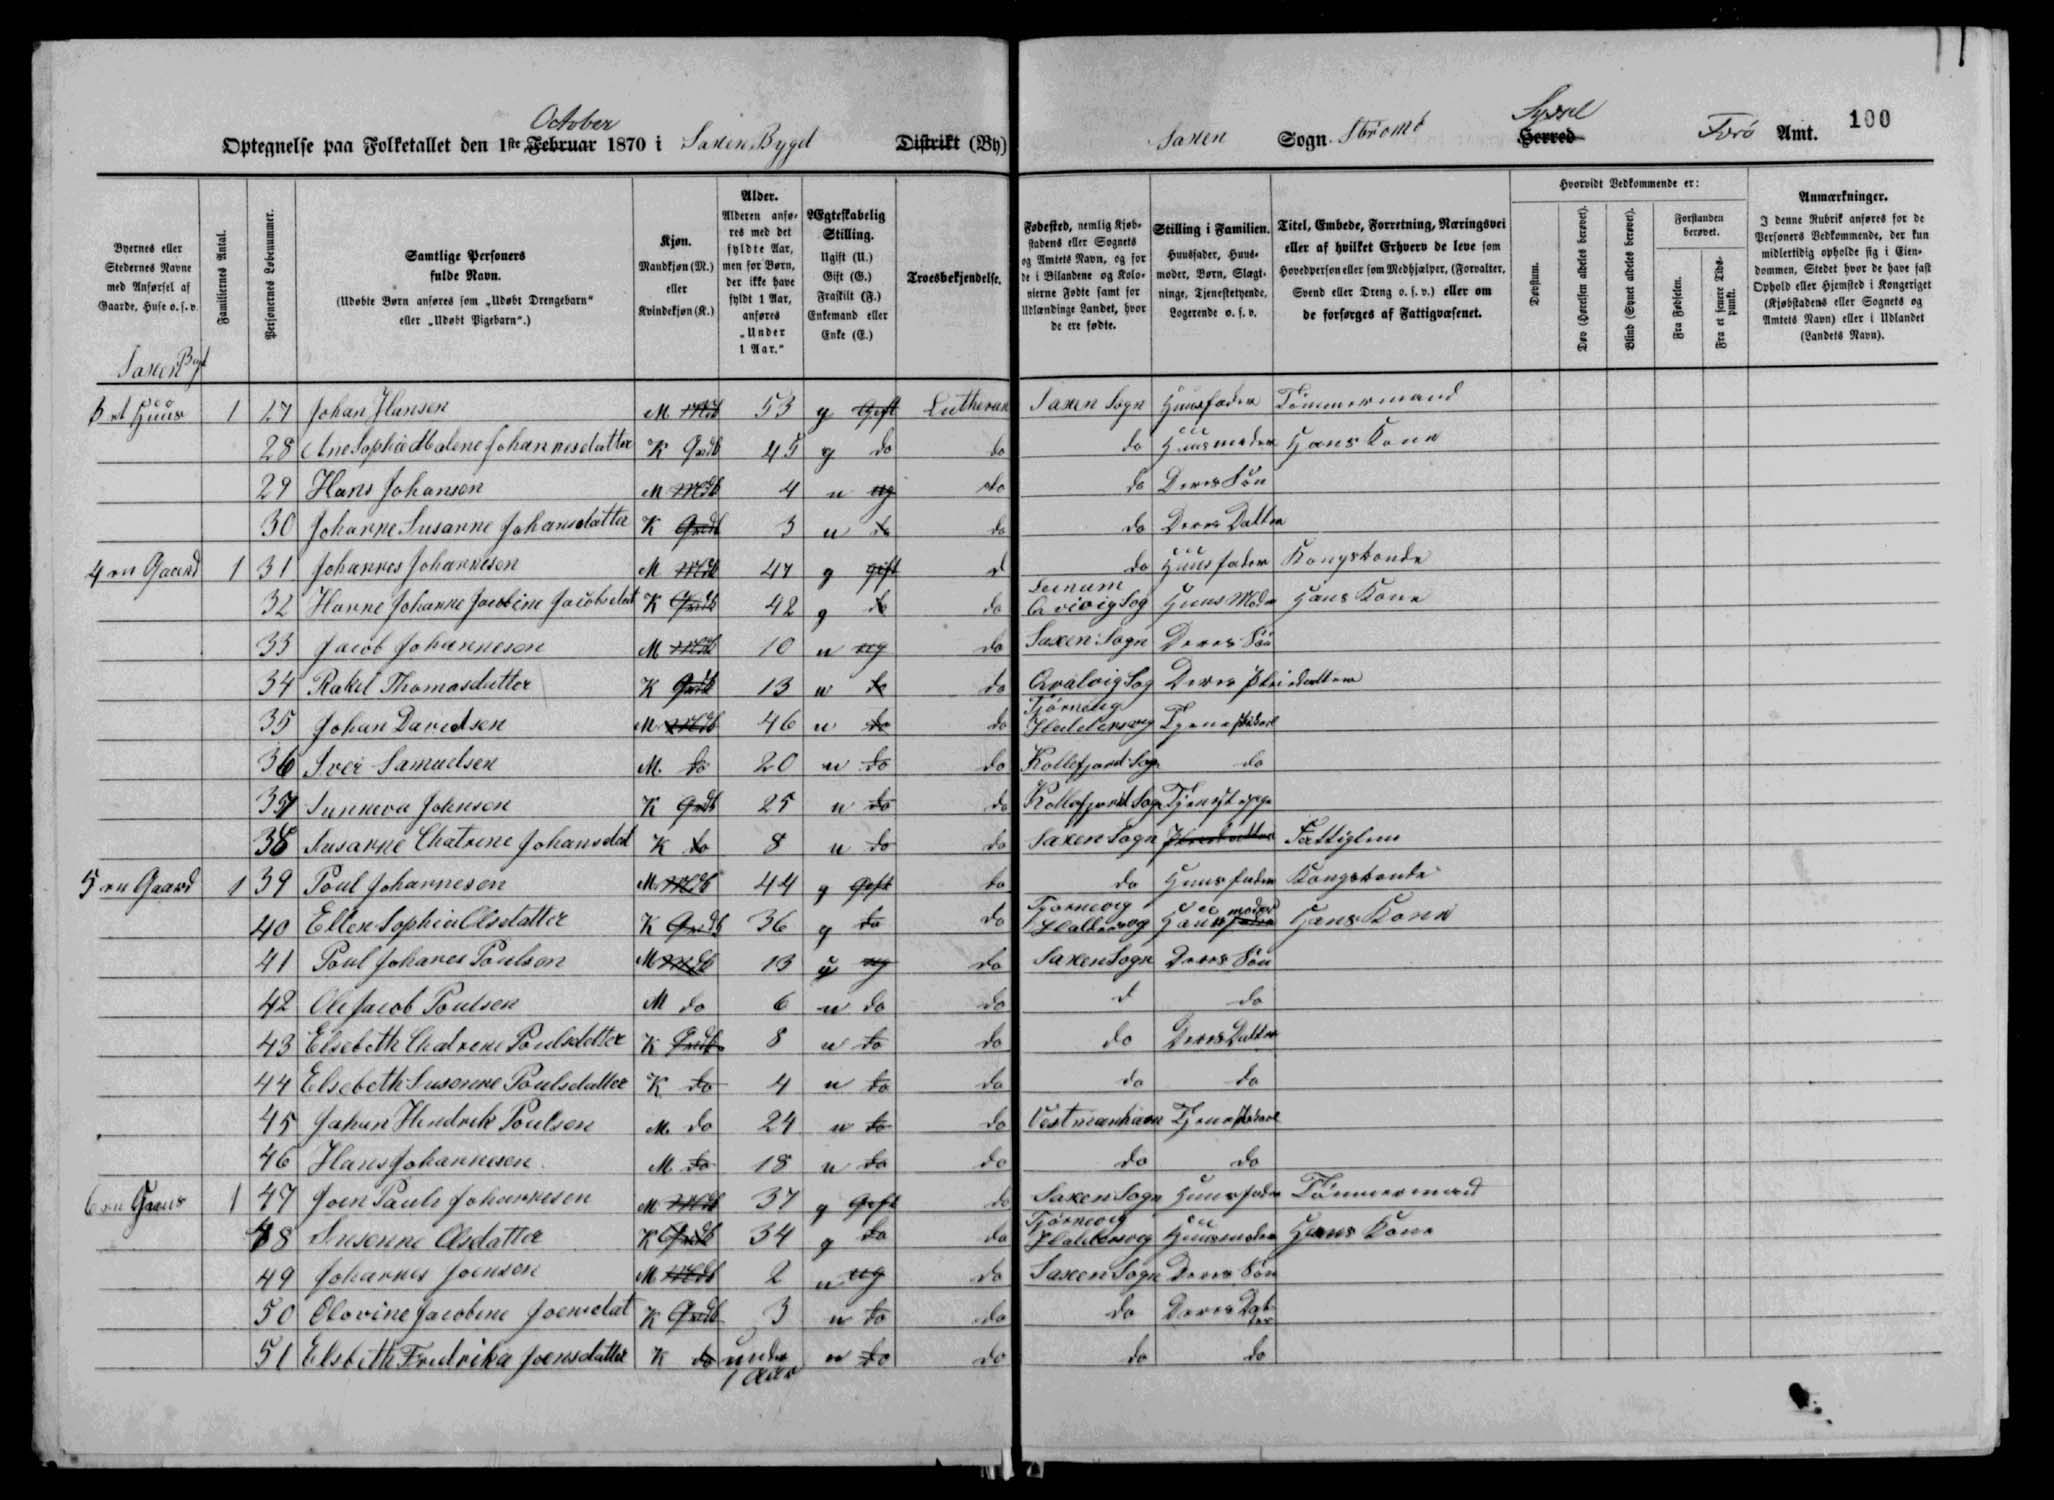 October
Optegnelse paa Folketallet den 1ste Februar 1870 i Saxen Bygd Distrikt (By)
Saxen Sogn. Strømø Syssel Herred Færø Amt. 100
Byernes eller Stedernes Navne med Anførsel af Gaarde, Huse o. s. v.
Familiernes Antal.
Personernes Løbenummer.
Samtlige Personers fulde Navn.
(Udøbte Børn anføres som „Udøbt Drengebarn“ eller „Udøbt Pigebarn“.)
Kjøn. Mandkjøn (M.) eller Kvindekjøn (K.)
Alder. Alderen anføres med det fyldte Aar, men for Børn, der ikke have fyldt 1 Aar, anføres „Under 1 Aar.“
Ægteskabelig Stilling. Ugift (U.) Gift (G.) Fraskilt (F.) Enkemand eller Enke (E.)
Troesbekjendelse.
Fødested, nemlig Kjøbstadens eller Sognets og Amtets Navn, og for de i Bilandene og Kolonierne Fødte samt for Udlændinge Landet, hvor de ere fødte.
Stilling i Familien. Huusfader, Huusmoder, Børn, Slægtninge, Tjenestetyende, Logerende o. s. v.
Titel, Embede, Forretning, Næringsvei eller af hvilket Erhverv de leve som Hovedperson eller som Medhjælper, (Forvalter, Svend eller Dreng o. s. v.) eller om de forsørges af Fattigvæsenet.
Hvorvidt Vedkommende er:
Døvstum.
Døv (Hørelsen aldeles berøvet).
Blind (Synet aldeles berøvet).
Forstanden berøvet.
Fra Fødselen.
Fra et senere Tidspunkt.
Anmærkninger.
I denne Rubrik anføres for de Personers Vedkommende, der kun midlertidig opholde sig i Eiendommen, Stedet hvor de have fast Ophold eller Hjemsted i Kongeriget (Kjøbstadens eller Sognets og Amtets Navn) eller i Udlandet (Landets Navn).
Saxen Bygd
3 et Huus 1 27 Johan Hansen M Mdk 53 g Gift Lutheran Saxen Sogn Huusfader Tømmermand
28 Ane Sophie Malene Johannesdatter K Qvdk 45 g do do do Huusmoder Hans Kone
29 Hans Johansen M Mdk 4 u ug do do Deres Søn
30 Johanne Susanne Johansdatter K Qvdk 3 u do do do Deres Datter
4 en Gaard 1 31 Johannes Johannesen M Mdk 47 g gift d do Huusfader Kongsbonde
32 Hanne Johanne Jacobine Jacobsdat K Qvdk 42 g do do Huus Moder Hans Kone
33 Jacob Johannesen M Mdk 10 u ug do Saxen Sogn Deres Søn
34 Rakel Thomasdatter K Qvdk 13 u do do Qvalvig Sog Deres Pleiedatter
35 Johan Davidsen M Mdk 46 u do do Tjørnevig Haldersvig Tjenestekarl
36 Sver Samuelsen M. do 20 u do do Kollefjord Sog do
37 Sunneva Johnsen K Qvdk 25 u do do Kollefjord Sogn Tjenestepige
38 Susanne Chatrine Johansdat K do 8 u do do Saxen Sogn Pleiedatter Fattiglem
5 en Gaard 1 39 Poul Johannesen M Mdk 44 g Gift do do Huusfader Kongsbonde
40 Ellen Sophia Olsdatter K Qvdk 36 g do do Tjørnevig Haldersvig Huusfader moder Hans Kone
41 Poul Johanes Poulsen M Mdk 13 u ug do Saxen Sogn Deres Søn
42 Ole Jacob Poulsen M do 6 u do do d do
43 Elsebeth Chatrine Poulsdatter K Qvdk 8 u do do do Deres Datter
44 Elsebeth Susanne Poulsdatter K do 4 u do do do do
45 Johan Hendrik Poulsen M. do 24 u do do Vestmanhavn Tjenestekarl
46 Hans Johannesen M. do 18 u do do do do
6 en Huus 1 47 Joen Pauli Johannesen M Mdk 37 g Gift do Saxen Sogn Huusfader Tømmermand
48 Susanne Olsdatter K Qvdk 34 g do do Tjørnevig Haldersvig Huusmoder Hans Kone
49 Johannes Joensen M Mdk 2 u ug do Saxen Sogn Deres Søn
50 Olovine Jacobine Joensdat K Qvdk 3 u do do do Deres Datter
51 Elsbeth Fredrika Joensdatter K do under 1 Aar u do do do do